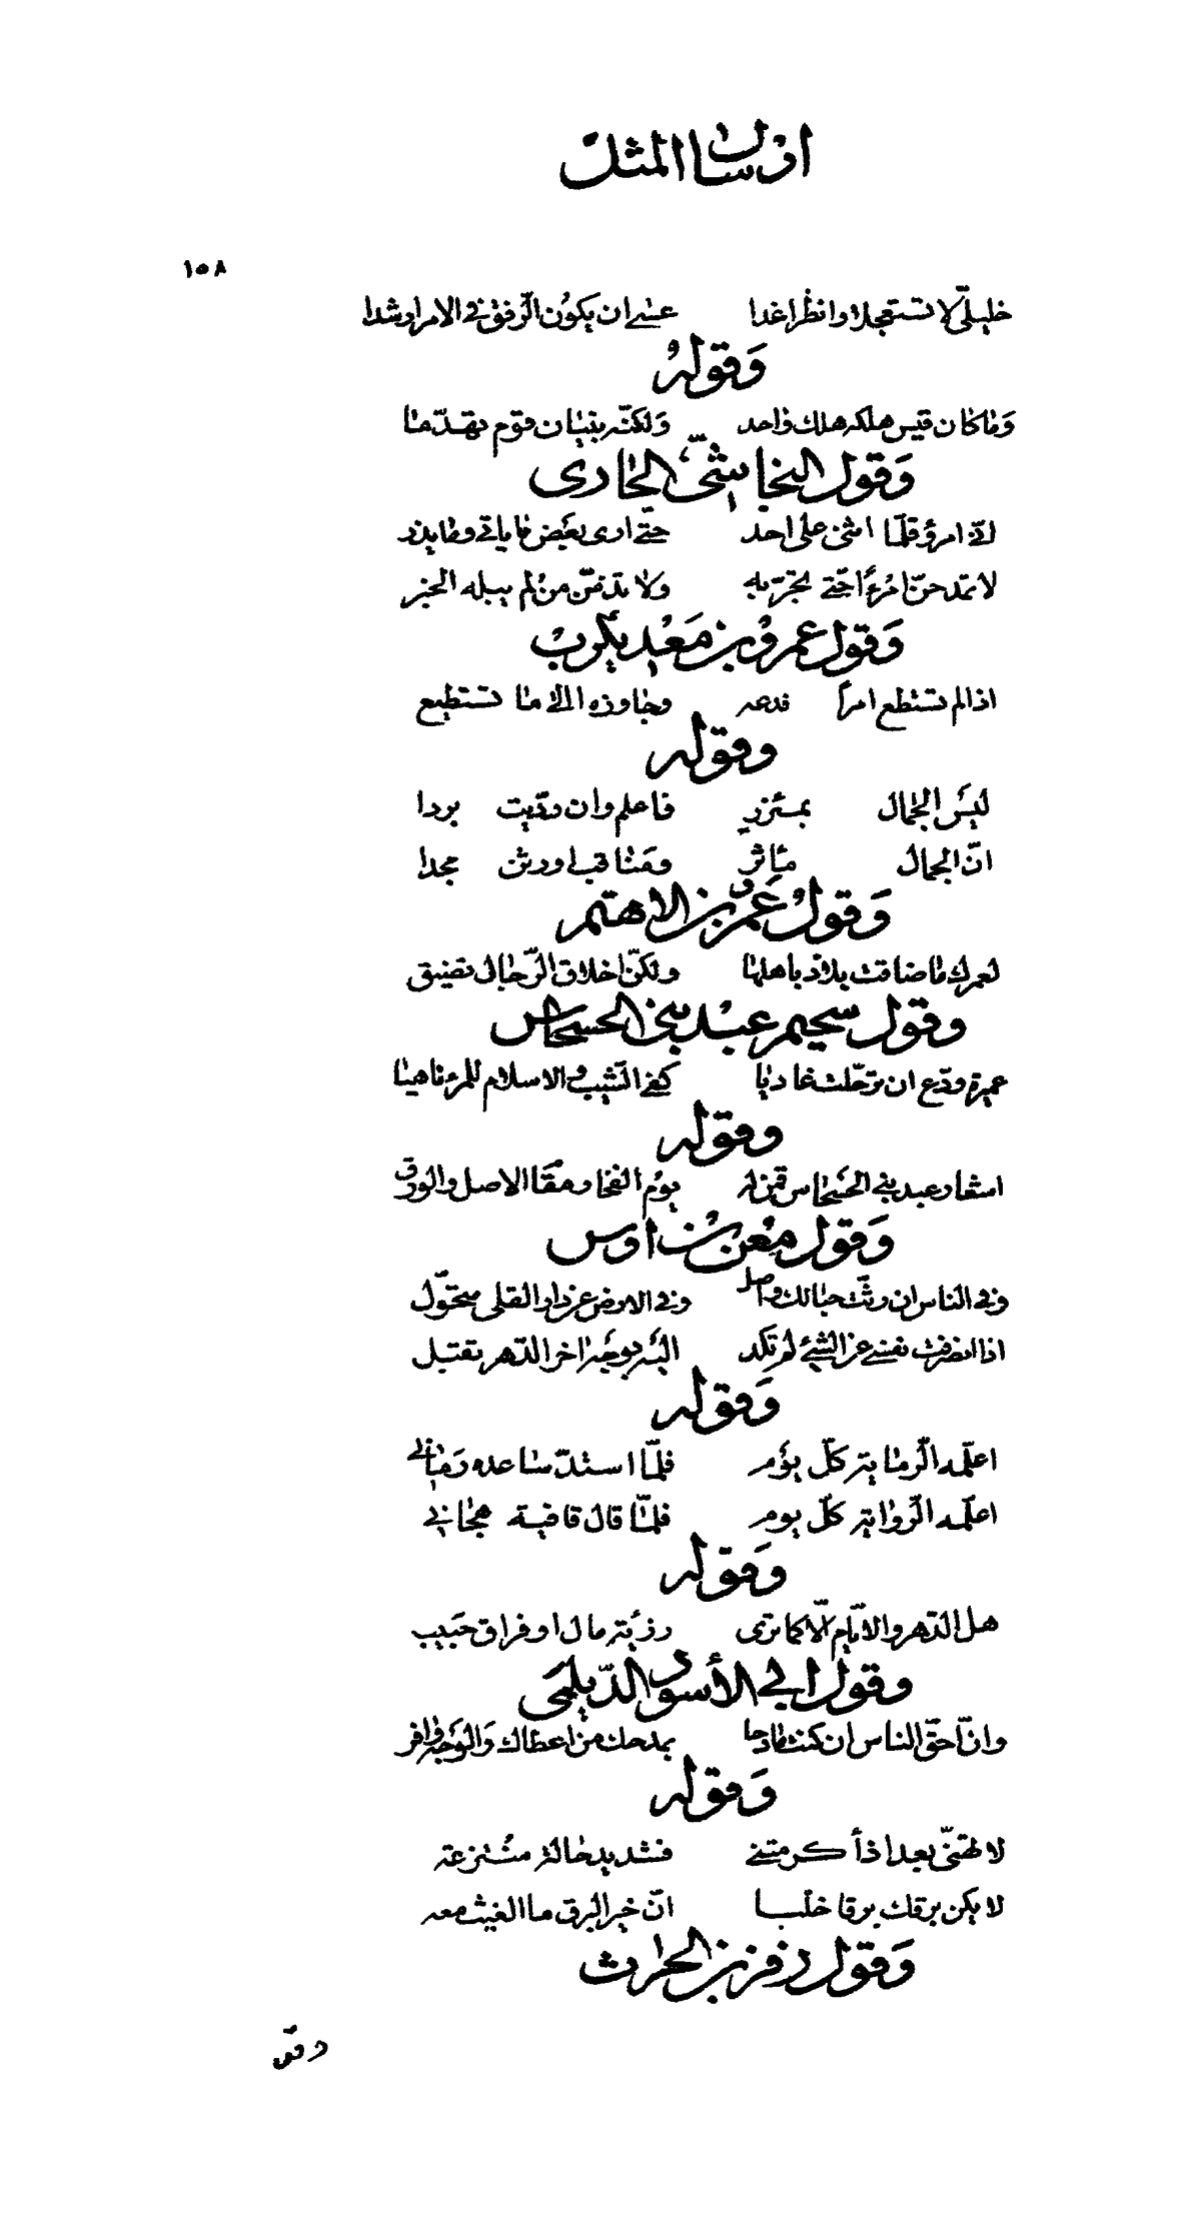 ارسال المثل
١٥٨
خليلىّ لا تستعجلا وانظرا غدا عسى ان يكون الرّفق فى الامر ارشدا
وَقولهُ
وَما كان قيس هلكه هلك واحد وَلكنّه بنيان قوم تهدّما
وَقول النجاشىّ الحارثى
انّى امرؤ قلّما اثنى على احد حتّى ارى بعَض ما ياتى وما يذر
لا تمدحنّ امْرءًا حتّى تجرّبه ولا تذمّنّ من لم يبله الخبر
وَقول عمرو بن مَعْديكرب
اذا لم تستطع امراً فدعه وجاوزه الى ما تستطيع
وقوله
ليَس الجمال بمئزرٍ فاعلم وان ردّيت بردا
انّ الجمال مآثر ومَناقب اورثن مجدا
وَقول عَمرو بن الاهتم
لعمرك ما ضاقت بلاد باهلها ولكنّ اخلاق الرّجال تضيق
وقول سحيم عبْد بنى الحسحاس
عميرة ودّع ان ترحّلت غاديا كفى الشّيب والاسلام للمرء ناهيا
وقوله
اشعار عبد بنى الحَسْحاس قمن له يوم الفخار مقَام الاصل والورق
وَقول معْن بْن اوس
وفى الناس ان رثّت حبالك واصل وفى الارض عن دار القلى متحّول
اذا انصرفت نفسى عن الشئ لم تكد اليَه بوجَه اخر الدّهر تقتبل
وَقوله
اعلّمه الرّماية كلّ يوَم فلمّا استدّ ساعده رَمانى
اعلّمه الرّواية كلّ يوم فلمّا قال قافية هجانى
وَقوله
هل الدّهر والايّام الّا كما ترى رزئية مال او فراق حَبيب
وقول ابى الأسود الدّيلمَى
وانّ احقّ الناس ان كنت مادحا بمدحك من اعطاك وَالوَجه وافر
وَقوله
لا تهنّى بعد اذ أكرمتنى فشديد عادة منْتزعة
لا يكن برقك برقا خلّبا انّ خير البرق ما الغيث معه
وَقول زفر بن الحارث